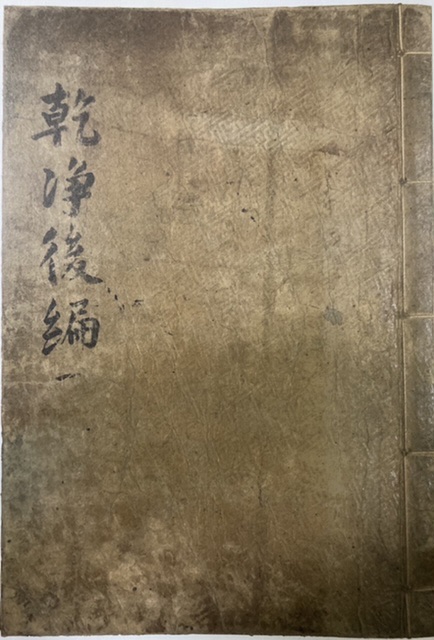 乾净後編一